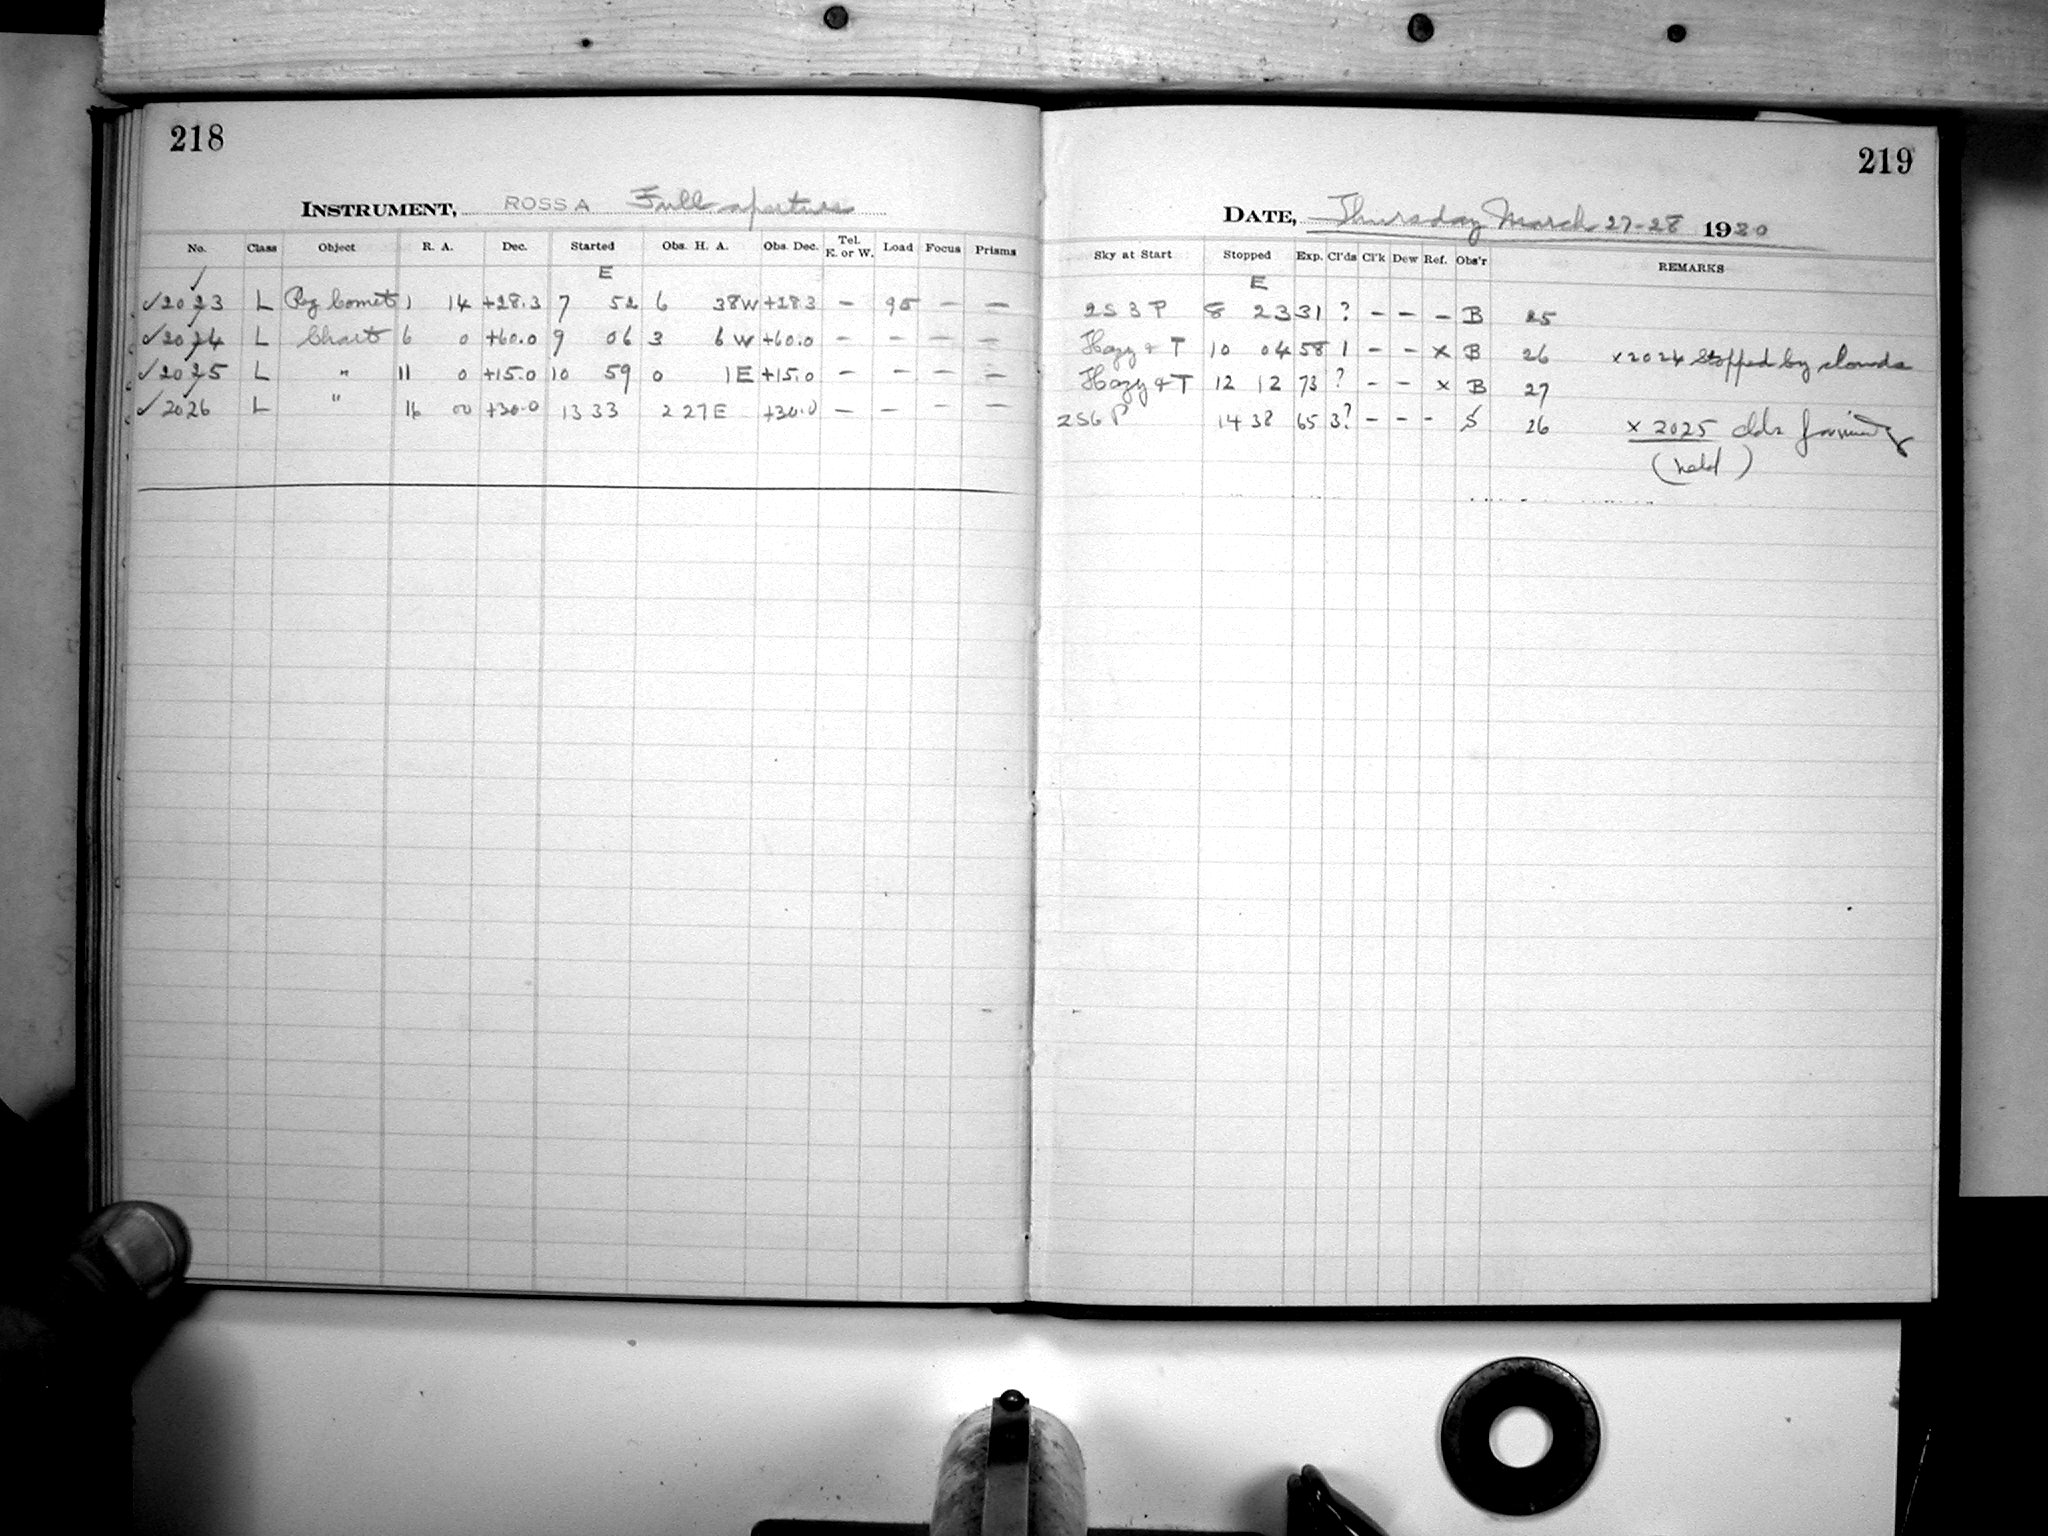 218
INSTRUMENT, ROSS A Full aperture
No. Class Object R. A. Dec. Started Obs. H. A. Obs. Dec. Tel. E. or W. Load Focus Prisms
E
✓2023 L Reg Comet 1 14 +28.3 7 52 6 38W +283 — 95 — —
✓2024 L Chart 6 0 +60.0 9 06 3 6 W +60.0 — — — —
✓2025 L " 11 0 +15.0 10 59 0 1E +15.0 — — — —
✓2026 L " 16 00 +30.0 13 33 2 27E +30.0 — — — —
219
DATE, Thursday March 27-28 1930
Sky at Start Stopped Exp. Cl'ds Cl'k Dew Ref. Obs'r REMARKS
E
2S 3 P 8 23 31 ? — — — B 25
Hazy & T 10 04 58 1 — — x B 26 x 2024 Stopped by clouds
Hazy & T 12 12 73 ? — — x B 27
2S6 P 14 38 65 3? — — — S 26 x 2025 clds forming
(held)